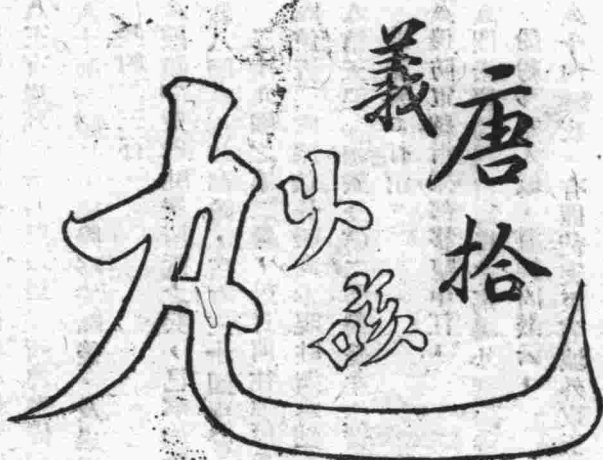 唐拾
義
咳
丸